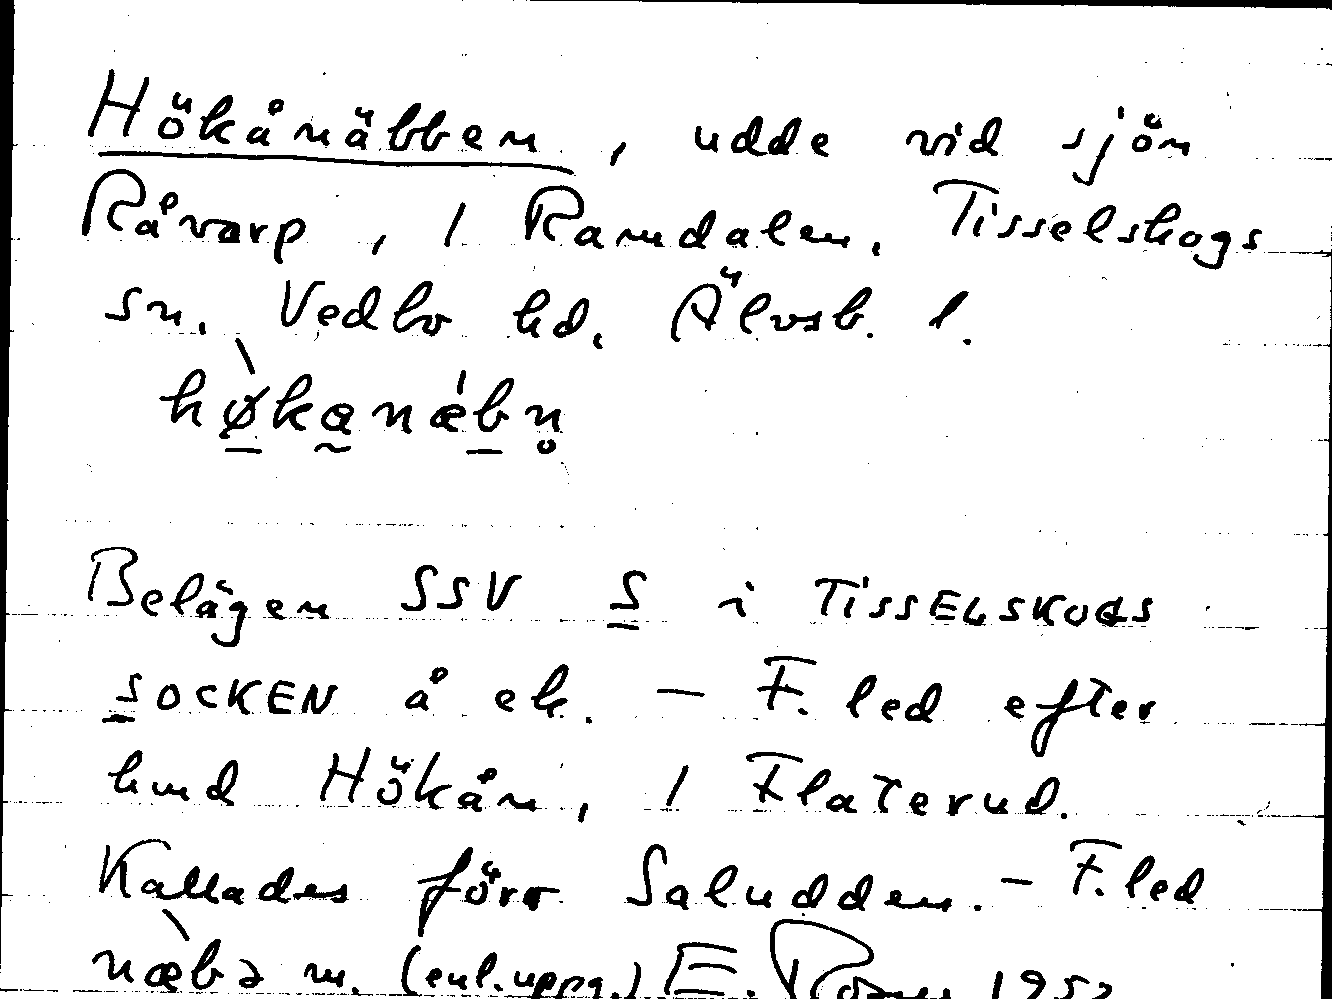 Hökånäbben, udde vid sjön
Råvarp, / Ramdalen, Tisselskogs
sn. Vedbo hd. Älvsb. l.
hø̀kanǽbn̥
Belägen SSV S i TISSELSKOGS
SOCKEN å ek. — F. led efter
hmd Hökån, / Flaterud.
Kallades förr Saludden. — F. led
næ̀bə m. (enl. uppg.) E. 1952